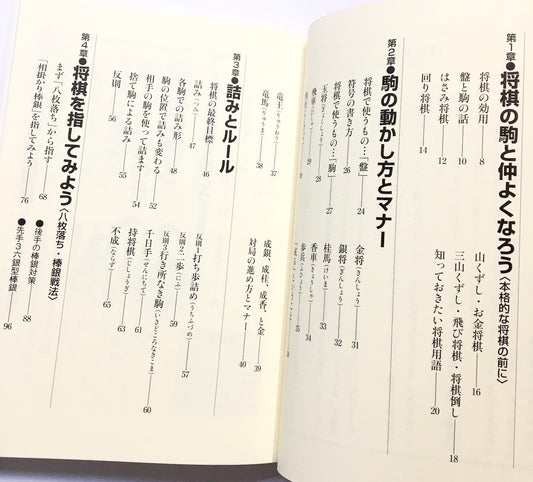 第1章●将棋の駒と仲よくなろう〈本格的な将棋の前に〉
将棋の効用 8
盤と駒の話 10
はさみ将棋 12
回り将棋 14
山くずし・お金将棋 16
三山くずし・飛び将棋・将棋倒し 18
知っておきたい将棋用語 20
第2章●駒の動かし方とマナー
将棋で使うもの…「盤」 24
符号の書き方 26
将棋で使うもの…「駒」 27
玉将 28
飛車 29
金将(きんしょう) 31
銀将(ぎんしょう) 32
桂馬(けいま) 33
香車(きょうしゃ) 34
歩兵(ふひょう) 35
竜王(りゅうおう) 37
竜馬(りゅうま) 38
成銀、成桂、成香、と金 39
対局の進め方とマナー 40
第3章●詰みとルール
将棋の最終目標 46
詰み(つみ) 47
各駒での詰み形 48
駒の位置で詰みも変わる 52
相手の駒を使って詰ます 54
捨て駒による詰み 55
反則 56
反則1 打ち歩詰め(うちふづめ) 57
反則2 二歩(にふ) 59
反則3 行き所なき駒(いきどころなきこま) 60
千日手(せんにちて) 61
持将棋(じしょうぎ) 63
不成(ならず) 65
第4章●将棋を指してみよう〈八枚落ち・棒銀戦法〉
まず「八枚落ち」から指す 68
「相掛かり棒銀」を指してみよう 76
●後手の棒銀対策 88
●先手3六銀型棒銀 96